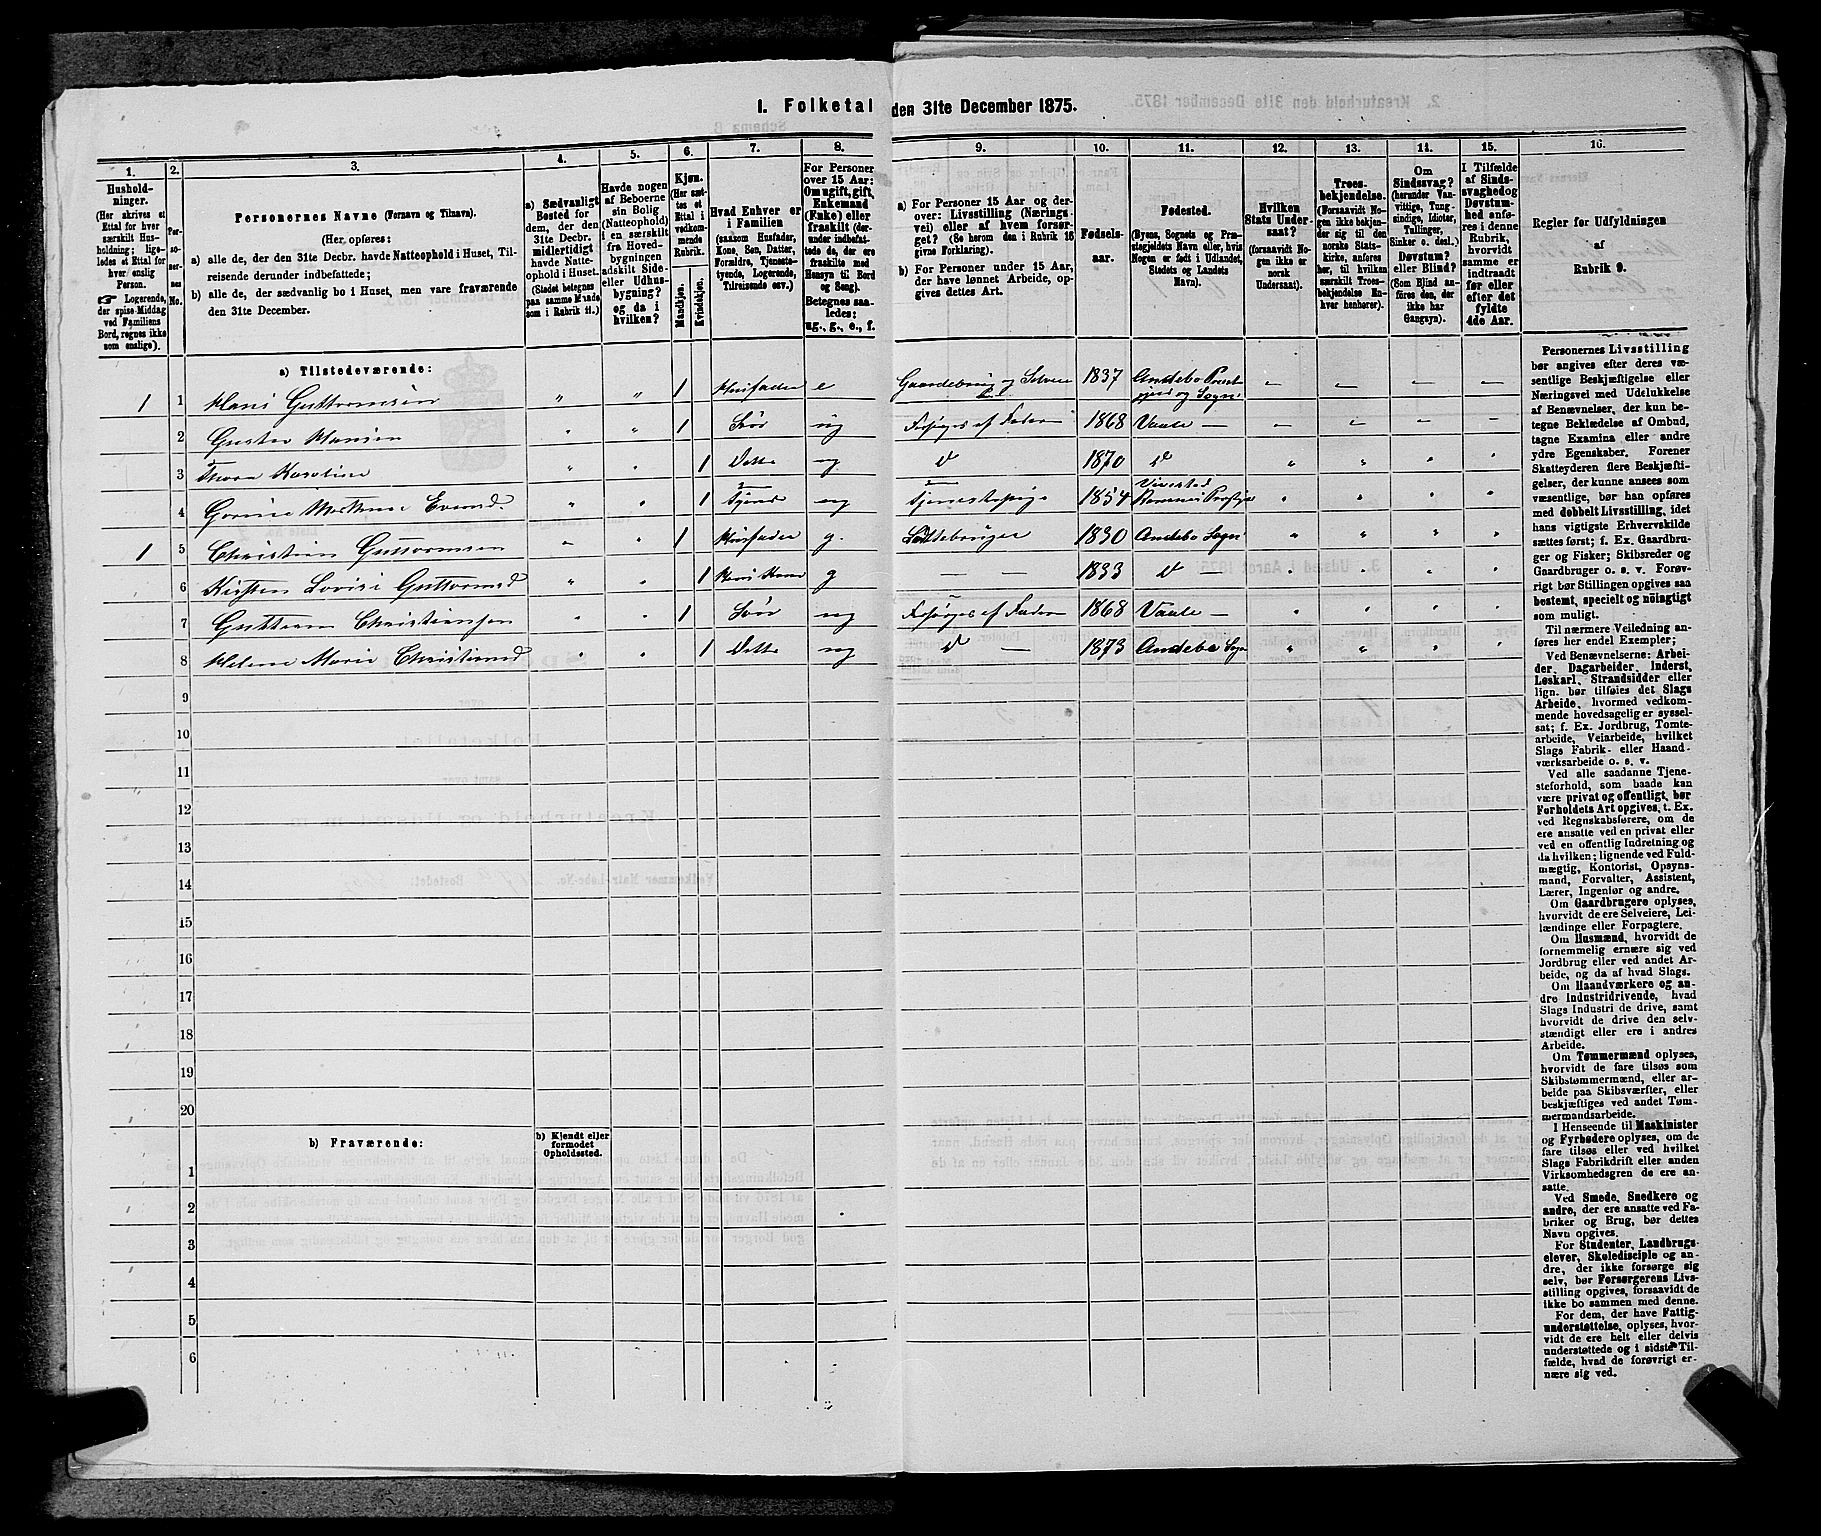 1. Folketal den 31te December 1875.
1.
Hushold-
ninger.
(Her skrives et
Ettal for hver
særskilt Hus-
holdning; lige-
ledes et Ettal for
hver enslig
Person.
☞ Logerende,
der spise Middag
ved Familiens
Bord, regnes ikke
som enslige).
2.
Per-
so-
ner-
nes
No.
3.
Personernes Navne (Fornavn og Tilnavn).
(Her, opføres:
a) alle de, der den 31te Decbr. havde Natteophold i Huset, Til-
reisende derunder indbefattede;
b) alle de, der sædvanlig bo i Huset, men vare fraværende
den 31te December.
4.
a) Sædvanligt
Bosted for
dem, der den
31te Decbr.
midlertidigt
havde Natte-
ophold i Huset.
(Stedet betegnes
paa samme Maade
som i Rubrik 11.)
5.
Havde nogen
af Beboerne
sin Bolig
(Natteophold)
i en særskilt
fra Hoved-
bygningen
adskilt Side-
eller Udhus-
bygning?
og da i
hvilken?
6.
Kjøn.
(Her sæt-
tes et
Ettal i
vedkom-
mende
Rubrik.
Mandkjøn.
Kvindekjøn.
7.
Hvad Enhver er
i Familien
(saasom Husfader,
Kone, Søn, Datter,
Forældre, Tjeneste-
tyende, Logerende,
Tilreisende osv.)
8.
For Personer
over 15 Aar:
Om ugift, gift,
Enkemand
(Enke) eller
fraskilt (der-
under indbefat-
tede de, der ere
fraskilte med
Hensyn til Bord
og Seng).
Betegnes saa-
ledes:
ug., g., e., f.
9.
a) For Personer 15 Aar og der-
over: Livsstilling (Nærings-
vei) eller af hvem forsør-
get? (Se herom den i Rubrik 16
givne Forklaring).
b) For Personer under 15 Aar,
der have lønnet Arbeide, op-
gives dettes Art.
10.
Fødsels-
aar.
11.
Fødested.
(Byens, Sognets og Præ-
stegjeldets Navn eller, hvis
Nogen er født i Udlandet,
Stedets og Landets
Navn).
12.
Hvilken
Stats Under-
saat?
(forsaavidt No-
gen ikke er
norsk
Undersaat).
13.
Troes-
bekjendelse.
(Forsaavidt No-
gen ikke bekjen-
der sig til den
norske Stats-
kirke, anføres
her, til hvilken
særskilt Troes-
bekjendelse En-
hver henhører).
14.
Om
Sindssvag?
(herunder Van-
vittige, Tung-
sindige, Idioter,
Tullinger,
Sinker o. desl.)
Døvstum?
eller Blind?
(Som Blind an-
føres den, der
ikke har
Gangsyn).
15.
I Tilfælde
af Sinds-
svaghed og
Døvstum-
hed anfø-
res i denne
Rubrik,
hvorvidt
samme er
indtraadt
før eller
efter det
fyldte
4de Aar.
16.
Regler for Udfyldningen
af
Rubrik 9.
a) Tilstedeværende:
1 1 Hans Guttormsen " " 1 Husfader e Gaardbrug og Selveier 1837 Andebo Præst-
gjeld og Sogn
2 Gustav Hansen " " 1 Søn ug Forsørges af Faderen 1868 Vaale
3 Thora Karoline " " 1 Dette ug 1870
4 Gorine " " 1 ug Tjenestepige 1854 Vivestad
Ramnes Præstgj
1 5 Christian Guttormsen " " 1 Husfader g. 1830 Andebo Sogn
6 Kirsten Lovise Guttormsd " " 1 Hans Kone g — — 1833
7 Guttorm Christiansen " " 1 Søn ug Forsørges af Faderen 1868 Vaale
8 Helene Marie Christiansd " " 1 Dette ug 1873 Andebo Sogn
9
10
11
12
13
14
15
16
17
18
19
20
b) Fraværende:
b) Kjendt eller
formodet
Opholdssted.
1
2
3
4
5
6
Personernes Livsstilling
bør angives efter deres væ-
sentlige Beskjæftigelse eller
Næringsvei med Udelukkelse
af Benævnelser, der kun be-
tegne Beklædelse af Ombud,
tagne Examina eller andre
ydre Egenskaber. Forener
Skatteyderen flere Beskjæfti-
gelser, der kunne ansees som
væsentlige, bør han opføres
med dobbelt Livsstilling, idet
hans vigtigste Erhvervskilde
sættes først; f. Ex. Gaardbru-
ger og Fisker; Skibsreder og
Gaardbruger o. s. v. Forøv-
rigt bør Stillingen opgives saa
bestemt, specielt og nøiagtigt
som muligt.
Til nærmere Veiledning an-
føres her endel Exempler;
Ved Benævnelserne: Arbei-
der, Dagarbeider, Inderst,
Løskarl, Strandsidder eller
lign. bør tilføies det Slags
Arbeide, hvormed vedkom-
mende hovedsagelig er syssel-
sat; f. Ex. Jordbrug, Tomte-
arbeide, Veiarbeide, hvilket
Slags Fabrik- eller Haand-
værksarbeide o. s. v.
Ved alle saadanne Tjene-
steforhold, som baade kan
være privat og offentligt, bør
Forholdets Art opgives, t. Ex.
ved Regnskabsførere, om de
ere ansatte ved en privat eller
ved en offentlig Indretning og
da hvilken; lignende ved Fuld-
mægtig, Kontorist, Opsyns-
mand, Forvalter, Assistent,
Lærer, Ingeniør og andre.
Om Gaardbrugere oplyses,
hvorvidt de ere Selveiere, Lei-
lændinge eller Forpagtere.
Om Husmænd, hvorvidt de
fornemmelig ernære sig ved
Jordbrug eller ved andet Ar-
beide, og da af hvad Slags.
Om Haandværkere og an-
dre Industridrivende, hvad
Slags Industri de drive, samt
hvorvidt de drive den selv-
stændigt eller ere i andres
Arbeide.
Om Tømmermænd oplyses,
hvorvidt de fare tilsøs som
Skibstømmermænd, eller ar-
beide paa Skibsværfter, eller
beskjæftiges ved andet Tøm-
mermandsarbeide.
I Henseende til Maskinister
og Fyrbødere oplyses, om de
fare tilsøs eller ved hvilket
Slags Fabrikdrift eller anden
Virksomhedsgren de ere an-
satte.
Ved Smede, Snedkere og
andre, der ere ansatte ved Fa-
briker og Brug, bør dettes
Navn opgives.
For Studenter, Landbrugs-
elever, Skoledisciple og an-
dre, der ikke forsørge sig
selv, bør Forsørgerens Livs-
stilling opgives, forsaavidt de
ikke bo sammen med denne.
For dem, der have Fattig-
understøttelse, oplyses, hvor-
vidt de ere helt eller delvis
understøttede og i sidste Til-
fælde, hvad de forøvrigt er-
nære sig ved.